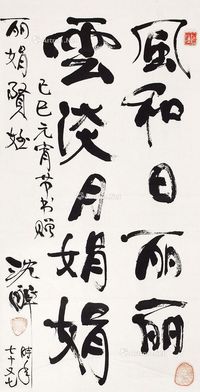 風和日丽丽
雲淡月娟娟
己巳元宵节书赠
丽娟贤姪
沈醉
时年
七十又七